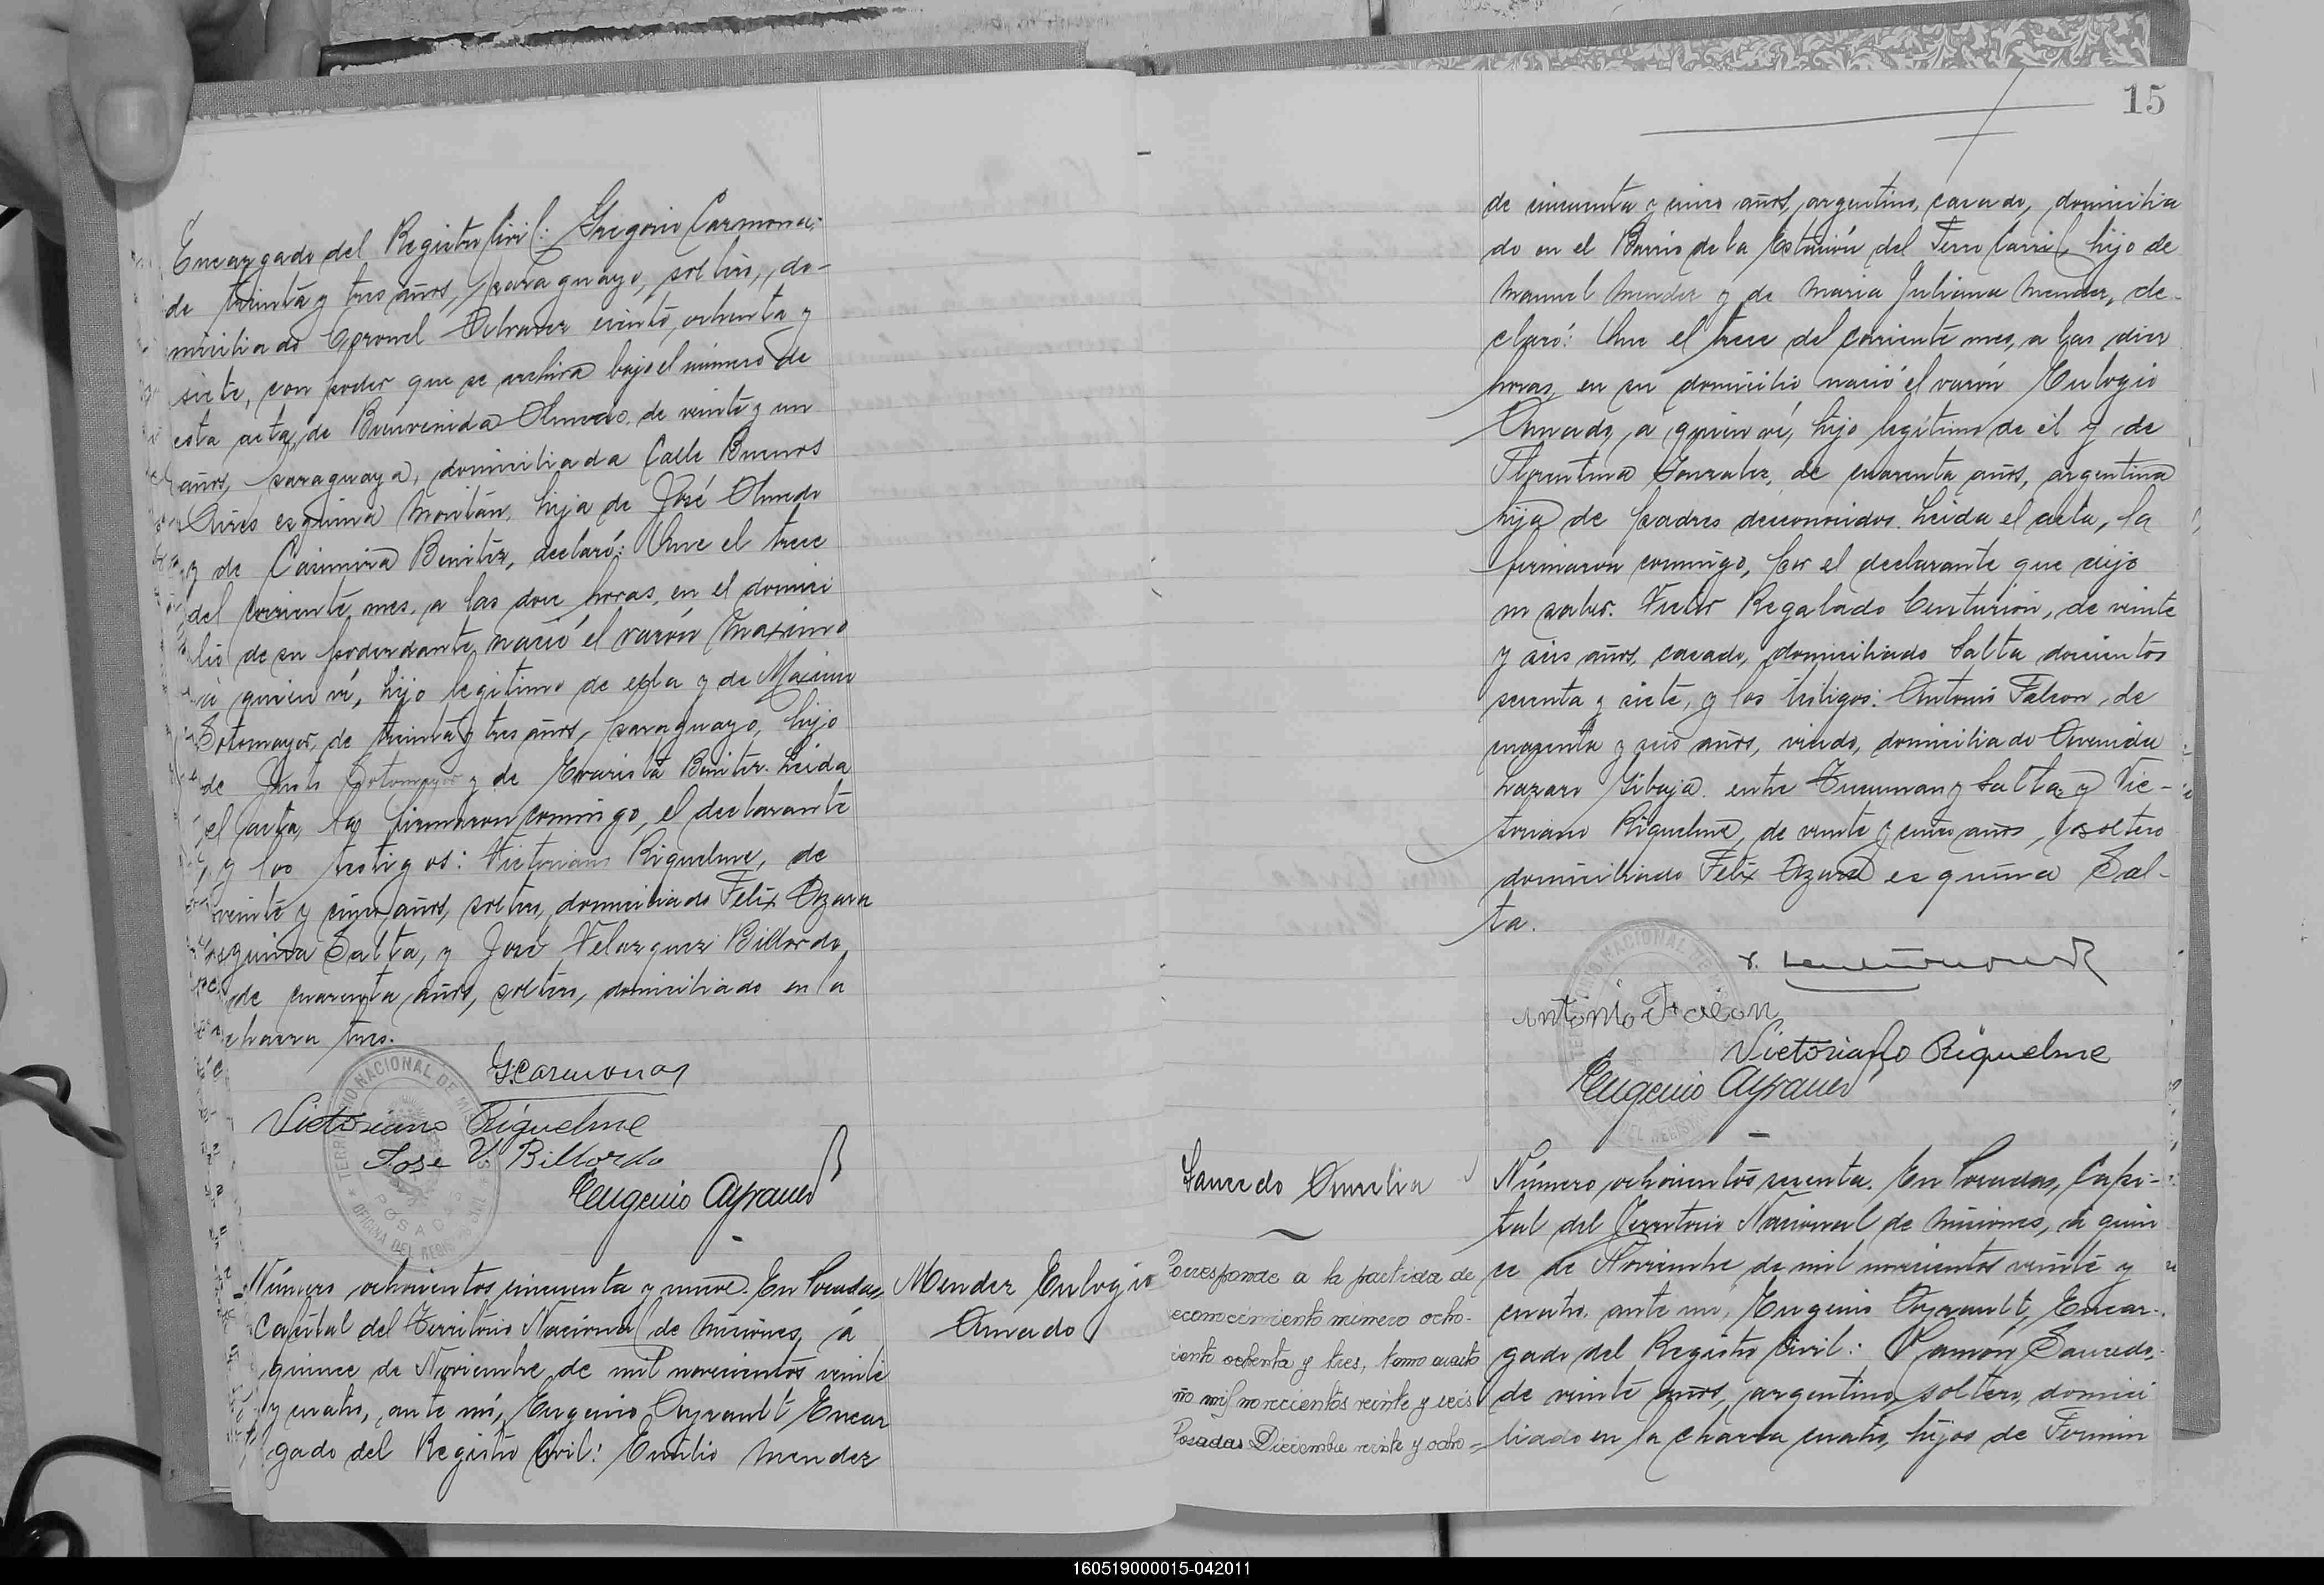 Encargado del Registro Civil: Gregorio Carmona,
de treinta y tres años, paraguayo, soltero, do-
miciliado Coronel Alvarez ciento ochenta y
siete, con poder que se archiva bajo el número de
esta acta, de Bienvenida Olmedo, de veinte y un
años, paraguaya, domiciliada Calle Buenos
Aires esquina Moritán, hija de José Olmedo
y de Casimira Benitez, declaró: Que el trece
del corriente mes, a las doce horas, en el domici
lio de su poderdante, nació el varón Maximo
á quien ví, hijo legitimo de ella y de Maximo
Sotomayor, de treinta y tres años, paraguayo, hijo
de Justo Sotomayor y de Evarista Benitez. Leida
el acta, la firmaron conmigo, el declarante
y los testigos: Victoriano Riquelme, de
veinte y cinco años, soltero, domiciliado Felix Azara
esquina Salta, y José Velazquez Billordo,
de cuarenta años, soltero, domiciliado en la
chacra tres.
G. Carmona
Victoriano Riquelme
Jose V. Billordo
Eugenio Ayrault
TERRITORIO NACIONAL DE MISIONES
POSADAS
OFICINA DEL REGISTRO CIVIL
Número ochocientos cincuenta y nueve. En Posadas,
Capital del Territorio Nacional de Misiones, á
quince de Noviembre de mil novecientos veinte
y cuatro, ante mí, Eugenio Ayrault, Encar
gado del Registro Civil: Emilio Mendez
Mendez Eulogio
Amado
15
de cincuenta y cinco años, argentino, casado, domicilia
do en el Barrio de la Estación del Ferro Carril, hijo de
Manuel Mendez y de Maria Juliana Mendez, de-
claró: Que el trece del corriente mes, a las diez
horas, en su domicilio nació el varón Eulogio
Amado, a quien ví, hijo legítimo de él y de
Florentina Gonzalez, de cuarenta años, argentina
hija de padres desconocidos. Leida el acta, la
firmaron conmigo, por el declarante que dijo
no saber. Victor Regalado Centurión, de veinte
y seis años, casado, domiciliado Salta doscientos
setenta y siete, y los testigos: Antonio Falcon, de
cuarenta y seis años, viudo, domiciliado Avenida
Lazaro Gibaja entre Tucuman y Salta, y Vic-
toriano Riquelme, de veinte y cinco años, soltero
domiciliado Felix Azara esquina Sal-
ta.
Antonio Falcon
Victoriano Riquelme
Eugenio Ayrault
Saucedo Amelia
Corresponde a la partida de
reconocimiento número ocho-
ciento ochenta y tres, tomo cuarto
año mil novecientos veinte y seis
Posadas Diciembre veinte y ocho=
Número ochocientos sesenta. En Posadas, Capi-
tal del Territorio Nacional de Misiones, á quin
ce de Noviembre de mil novecientos veinte y
cuatro, ante mí, Eugenio Ayrault, Encar-
gado del Registro Civil: Ramón Saucedo,
de veinte años, argentino, soltero, domici
liado en la chacra cuatro, hijos de Fermin
160519000015-042011